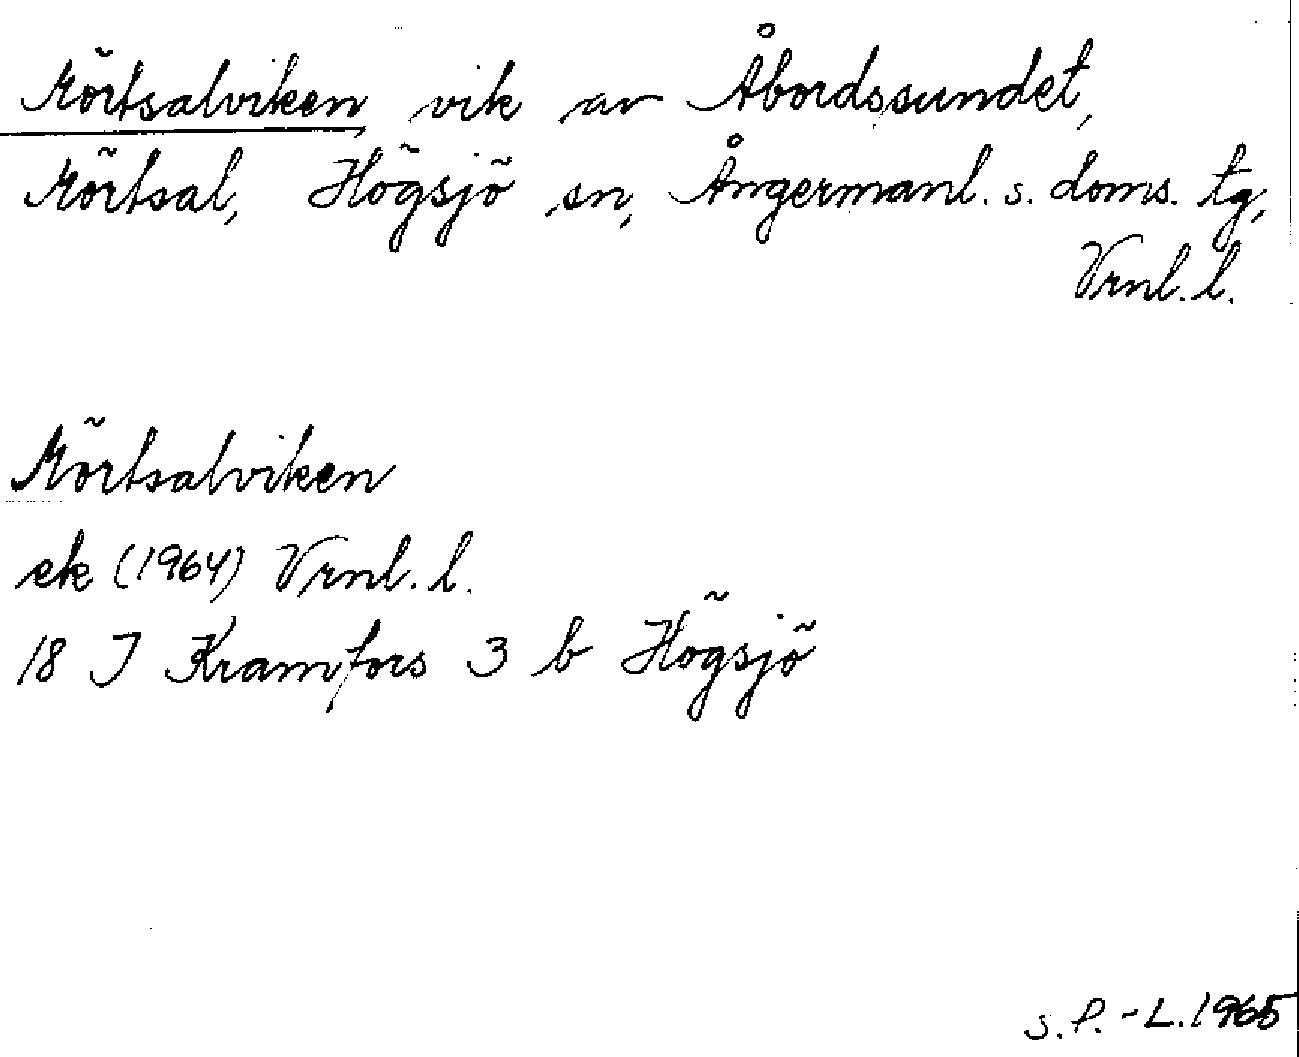 Mörtsalviken, vik av Åbordssundet,
Mörtsal, Högsjö sn, Ångermanl. s. doms. tg,
Vrnl. l.
Mörtsalviken
ek (1964) Vrnl. l.
18 J Kramfors 3 b Högsjö
S. P.-L. 1965